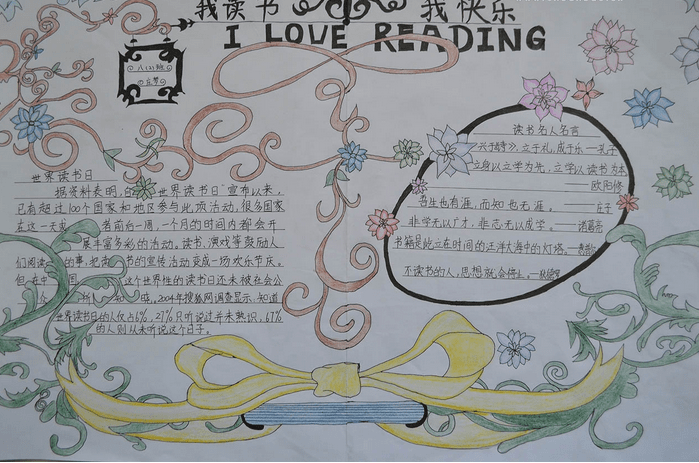 我读书 我快乐
I LOVE READING
八(3)班
世界读书日
据资料表明,自"世界读书日"宣布以来,
已有超过100个国家和地区参与此项活动,很多国家
在这一天或者前后一周,一个月的时间内都会开
展丰富多彩的活动。读书、演戏等鼓励人
们阅读的事,把读书的宣传活动变成一场欢乐节庆。
但在中国,这个世界性的读书日还未被社会公
2004年搜狐网调查显示,知道
世界读书日的人仅占6%,27%只听说过并未熟识,67%
的人则从未听说这个日子。
读书名人名言
兴于《诗》,立于礼,成于乐——孔子
立身以立学为先,立学以读书为本
——欧阳修
吾生也有涯,而知也无涯。——庄子
非学无以广才,非志无以成学。——诸葛亮
书籍是屹立在时间的汪洋大海中的灯塔。
不读书的人,思想就会停止。